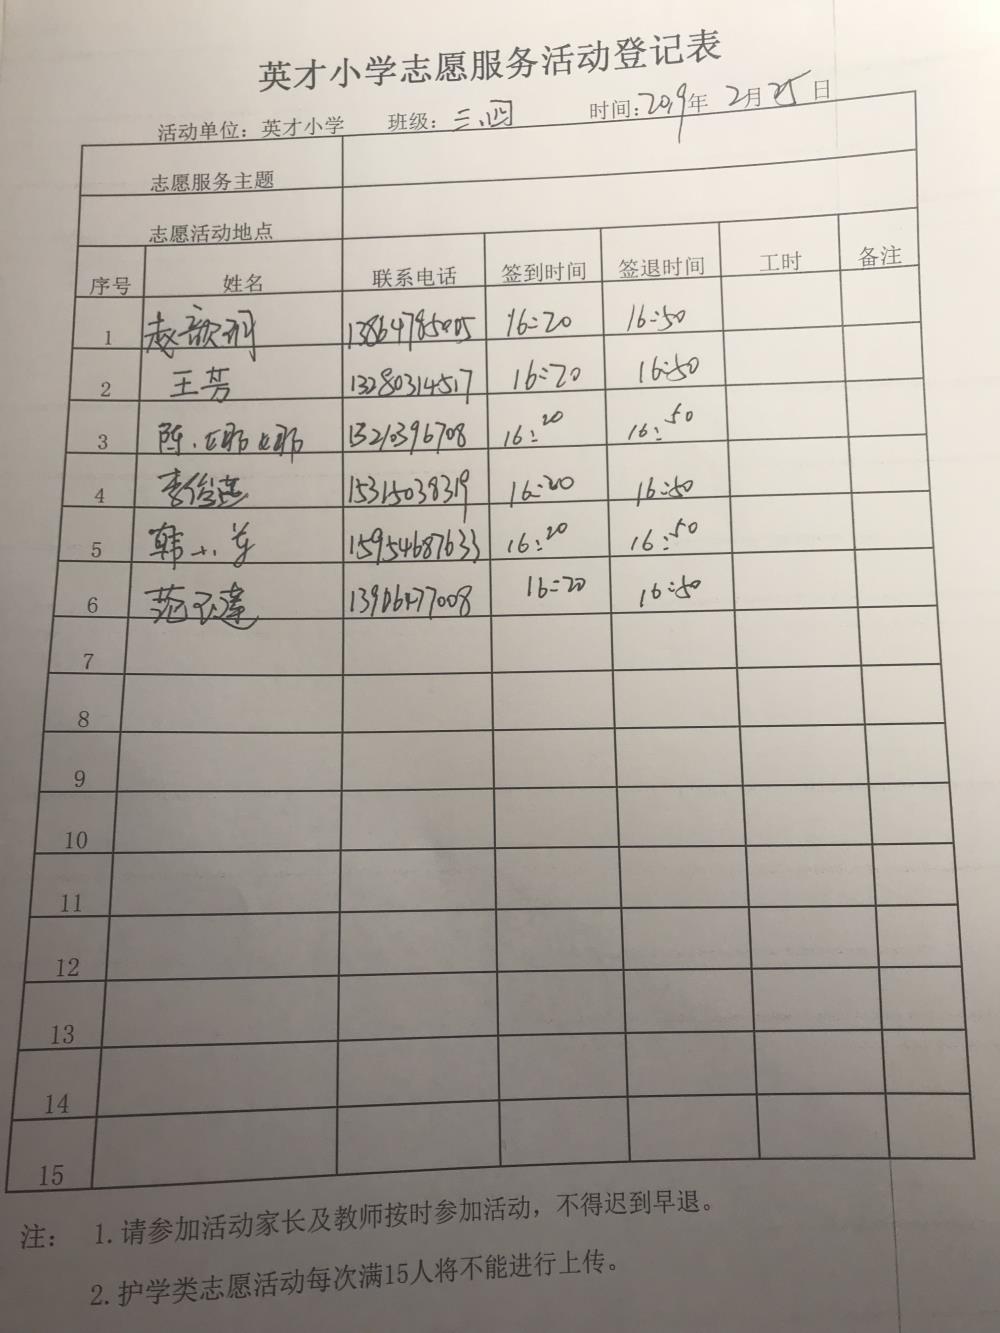 英才小学志愿服务活动登记表
活动单位：英才小学 班级：三、四 时间：2019年 2月 25日
志愿服务主题
志愿活动地点
序号 姓名 联系电话 签到时间 签退时间 工时 备注
1 赵歆珂 13864785005 16:20 16:50
2 王芳 13280314517 16:20 16:50
3 陈娜娜 13210396708 16:20 16:50
4 李俊燕 15315038319 16:20 16:50
5 韩小 15954687633 16:20 16:50
6 范玉莲 13906477008 16:20 16:50
7
8
9
10
11
12
13
14
15
注： 1.请参加活动家长及教师按时参加活动，不得迟到早退。
2.护学类志愿活动每次满15人将不能进行上传。